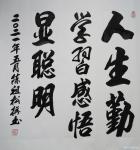 人生勤
学習感悟
显聪明
二〇二一年五月